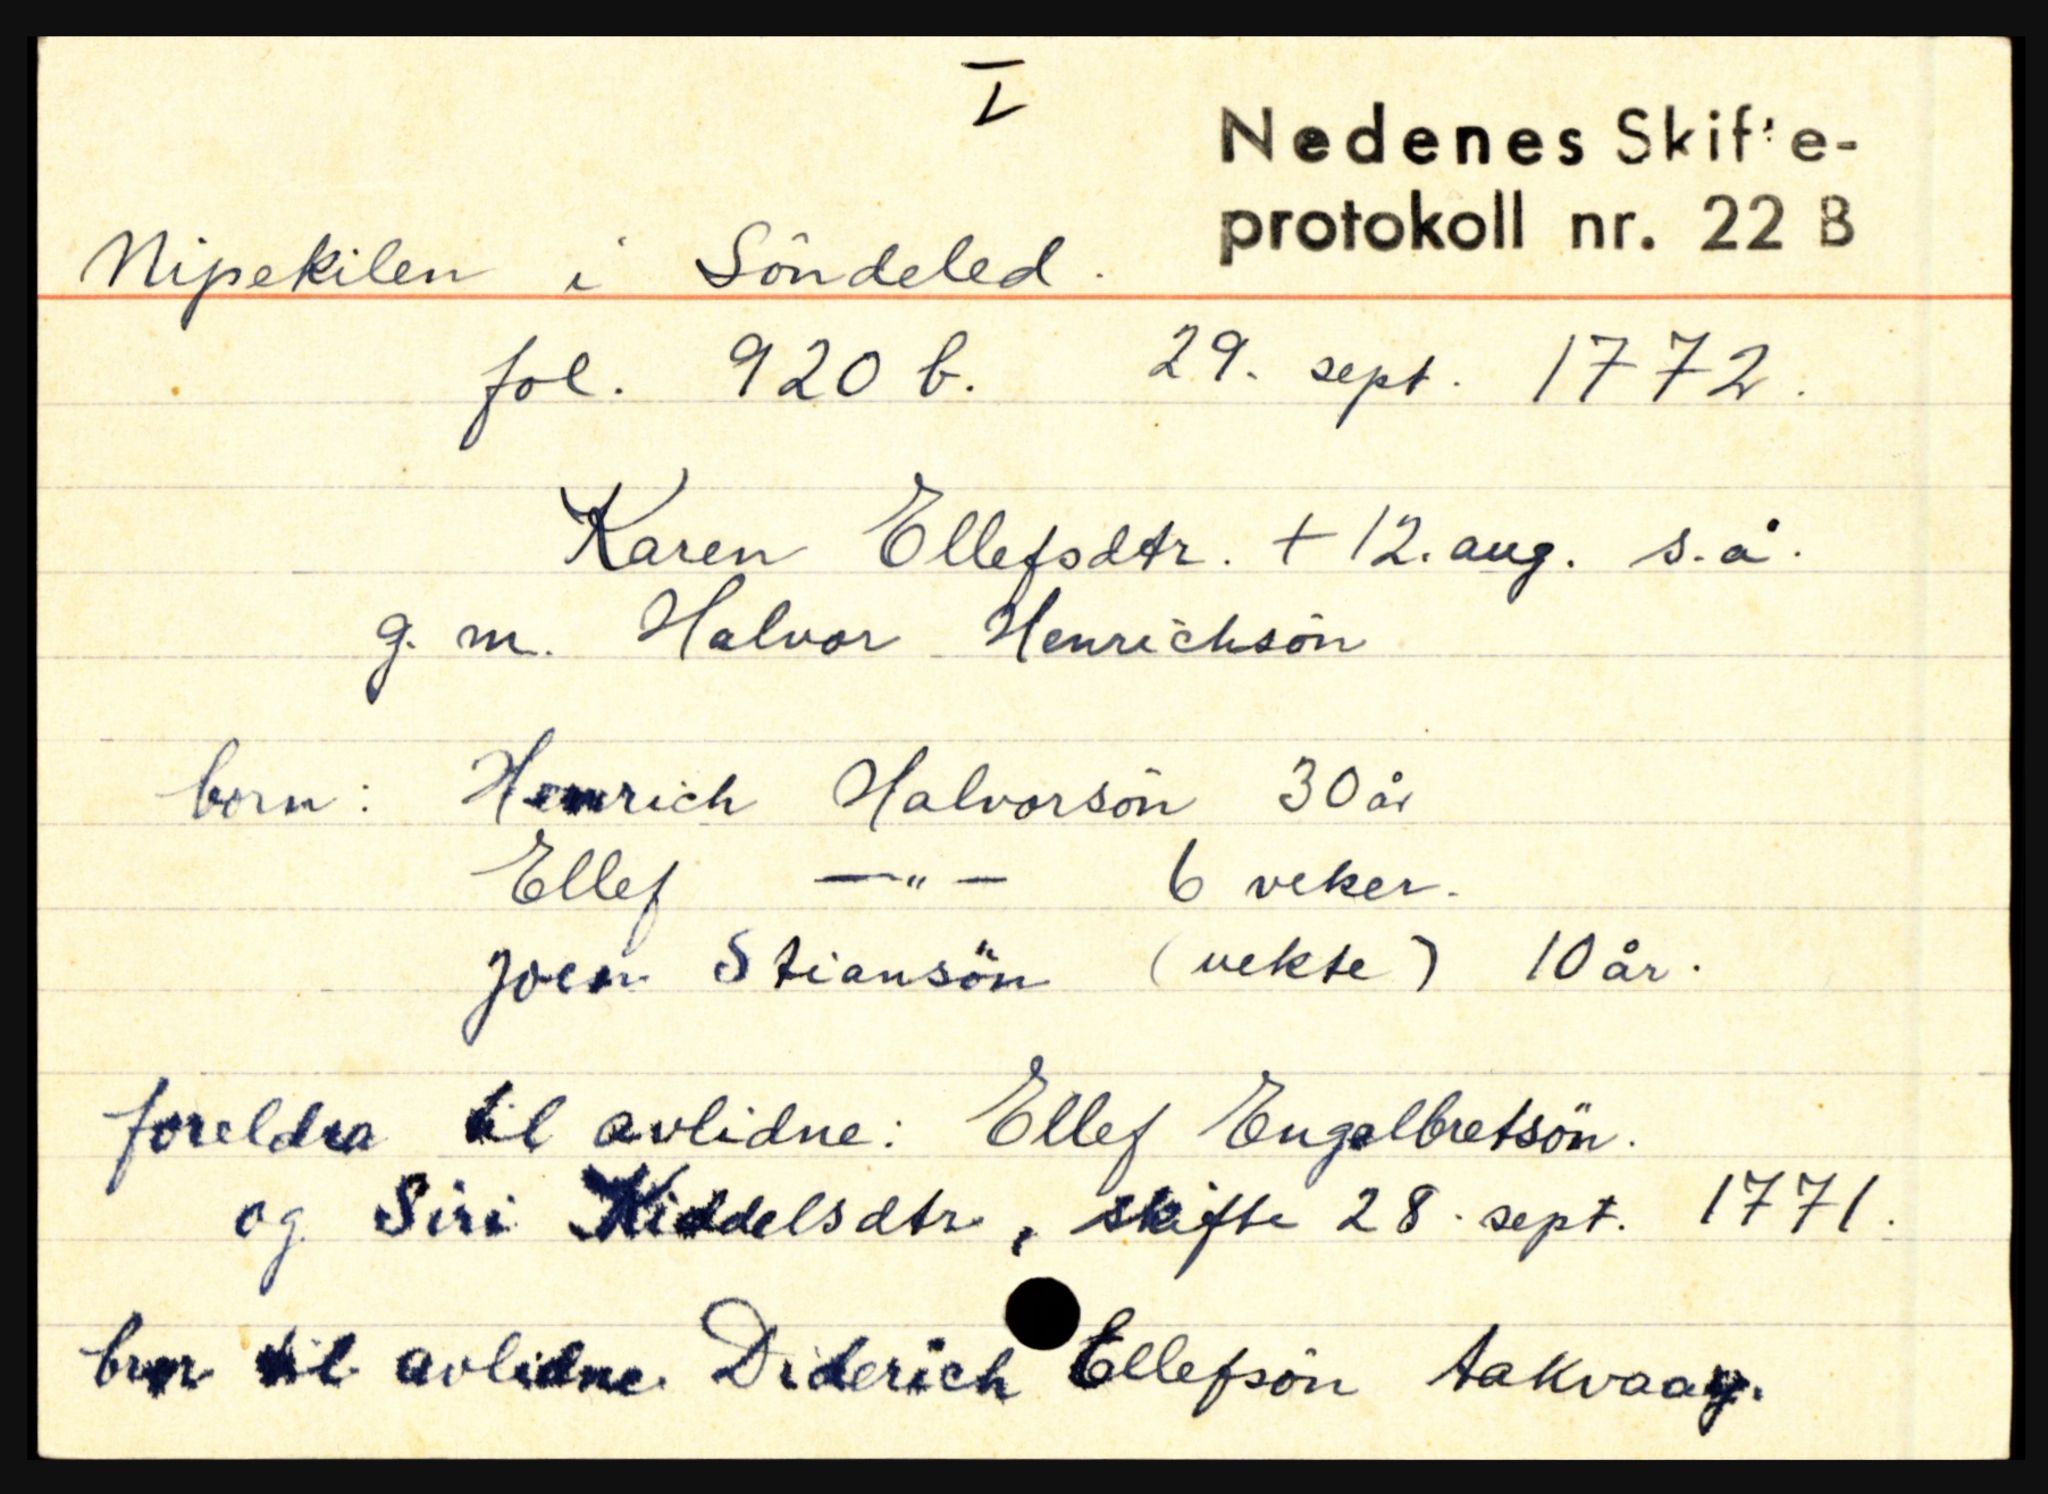 I
Nedenes Skifte-
protokoll nr. 22 B
Nipekilen i Söndeled.
fol. 920 b. 29. sept. 1772.
Karen Ellefsdtr. + 12. aug. s. å.
g. m. Halvor Henrichsön
born: Henrich Halvorsön 30 år
Ellef —"— 6 veker.
Joen Stiansön (uekte) 10 år.
foreldra til avlidne: Ellef Engelbretsön.
og Siri Kiddelsdtr, skifte 28. sept. 1771.
bror til avlidne Diderich Ellefsön Aakvaag.